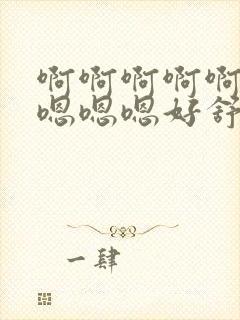 啊啊啊啊啊
嗯嗯嗯好舒
一肆